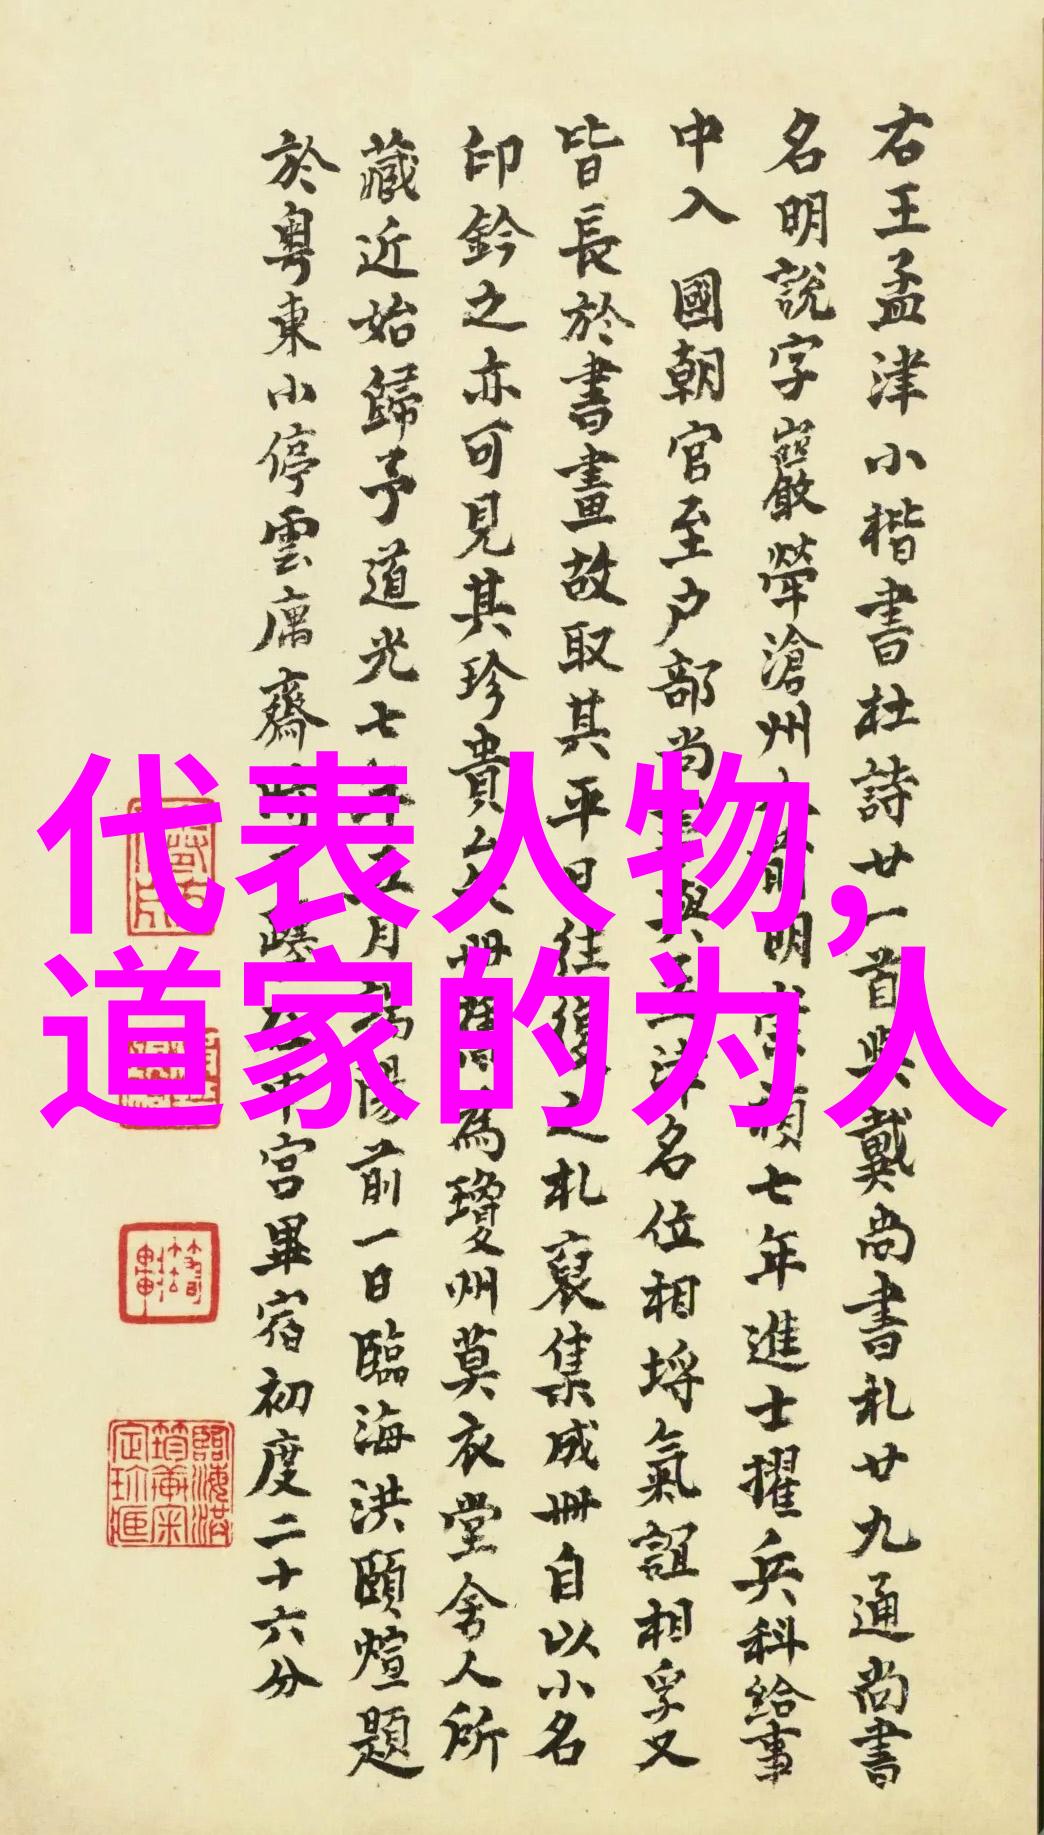 右王孟津小楷書杜詩廿一首與戴尚書札廿九通尚書
名明說字巖犖滄州人前明崇禎七年進士擢兵科給事
中入國朝官至户部尚書與孟津名位相埒氣誼相孚又
皆長於書畫故取其平日往復之札裒集成冊自以小名
印鈐之亦可見其珍貴矣冊舊為瓊州莫衣堂舍人所
藏近始歸予道光七年五月端陽前一日臨海洪頤煊題
於粵東小停雲庽齋時中宮畢宿初度二十六分
代表人物,
道家的为人